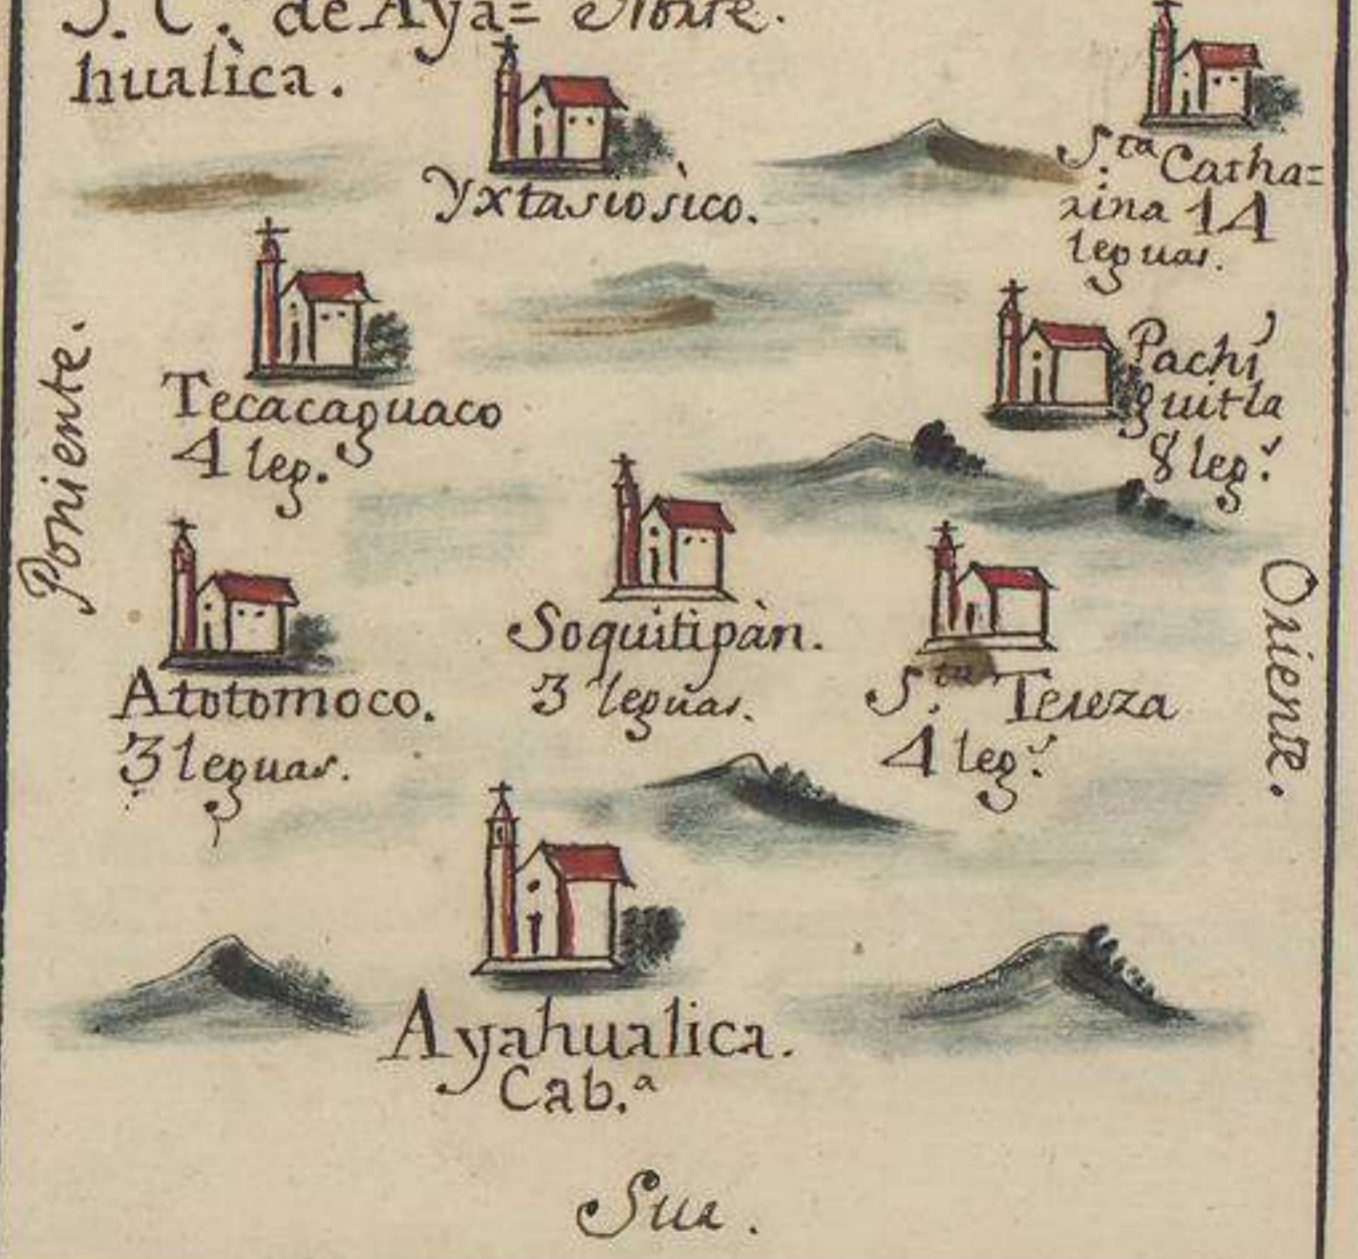 J. C. de Aya= Norte.
hualìca.
Yxtasiosìco.
S.ta Catha=
rina 14
leguas.
Tecacaguaco
4 leg.
Pachi
guitla
8 leg.s
Poniente.
Oriente.
Atotomoco.
3 leguas.
Soquitipàn.
3 leguas.
S.ta Tereza
4 leg.s
Ayahualica.
Cab.a
Sur.